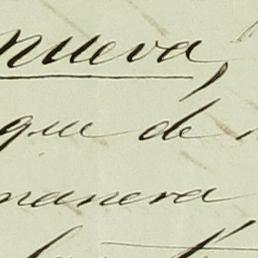 nueva,
que de
manera